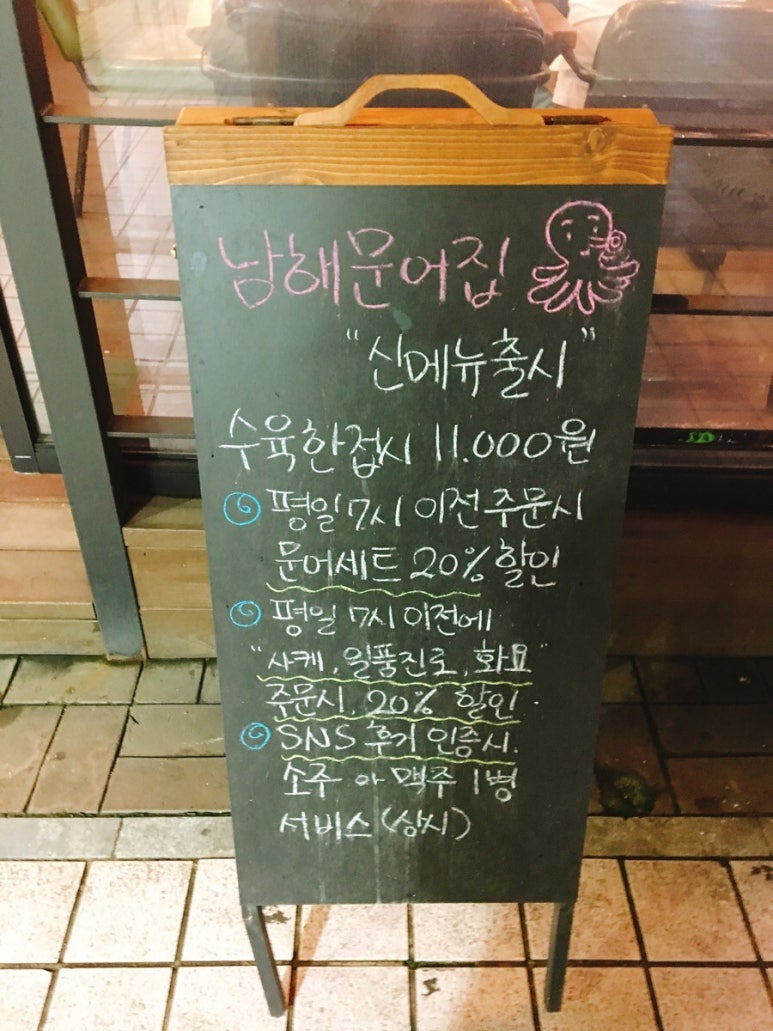 남해문어집
"신메뉴출시"
수육한접시 11.000원
평일 7시 이전 주문시
문어세트 20% 할인
평일 7시 이전에
"사케, 일품진로, 화요"
주문시, 20% 할인.
SNS 후기 인증시.
소주 or 맥주 1병
서비스(상시)